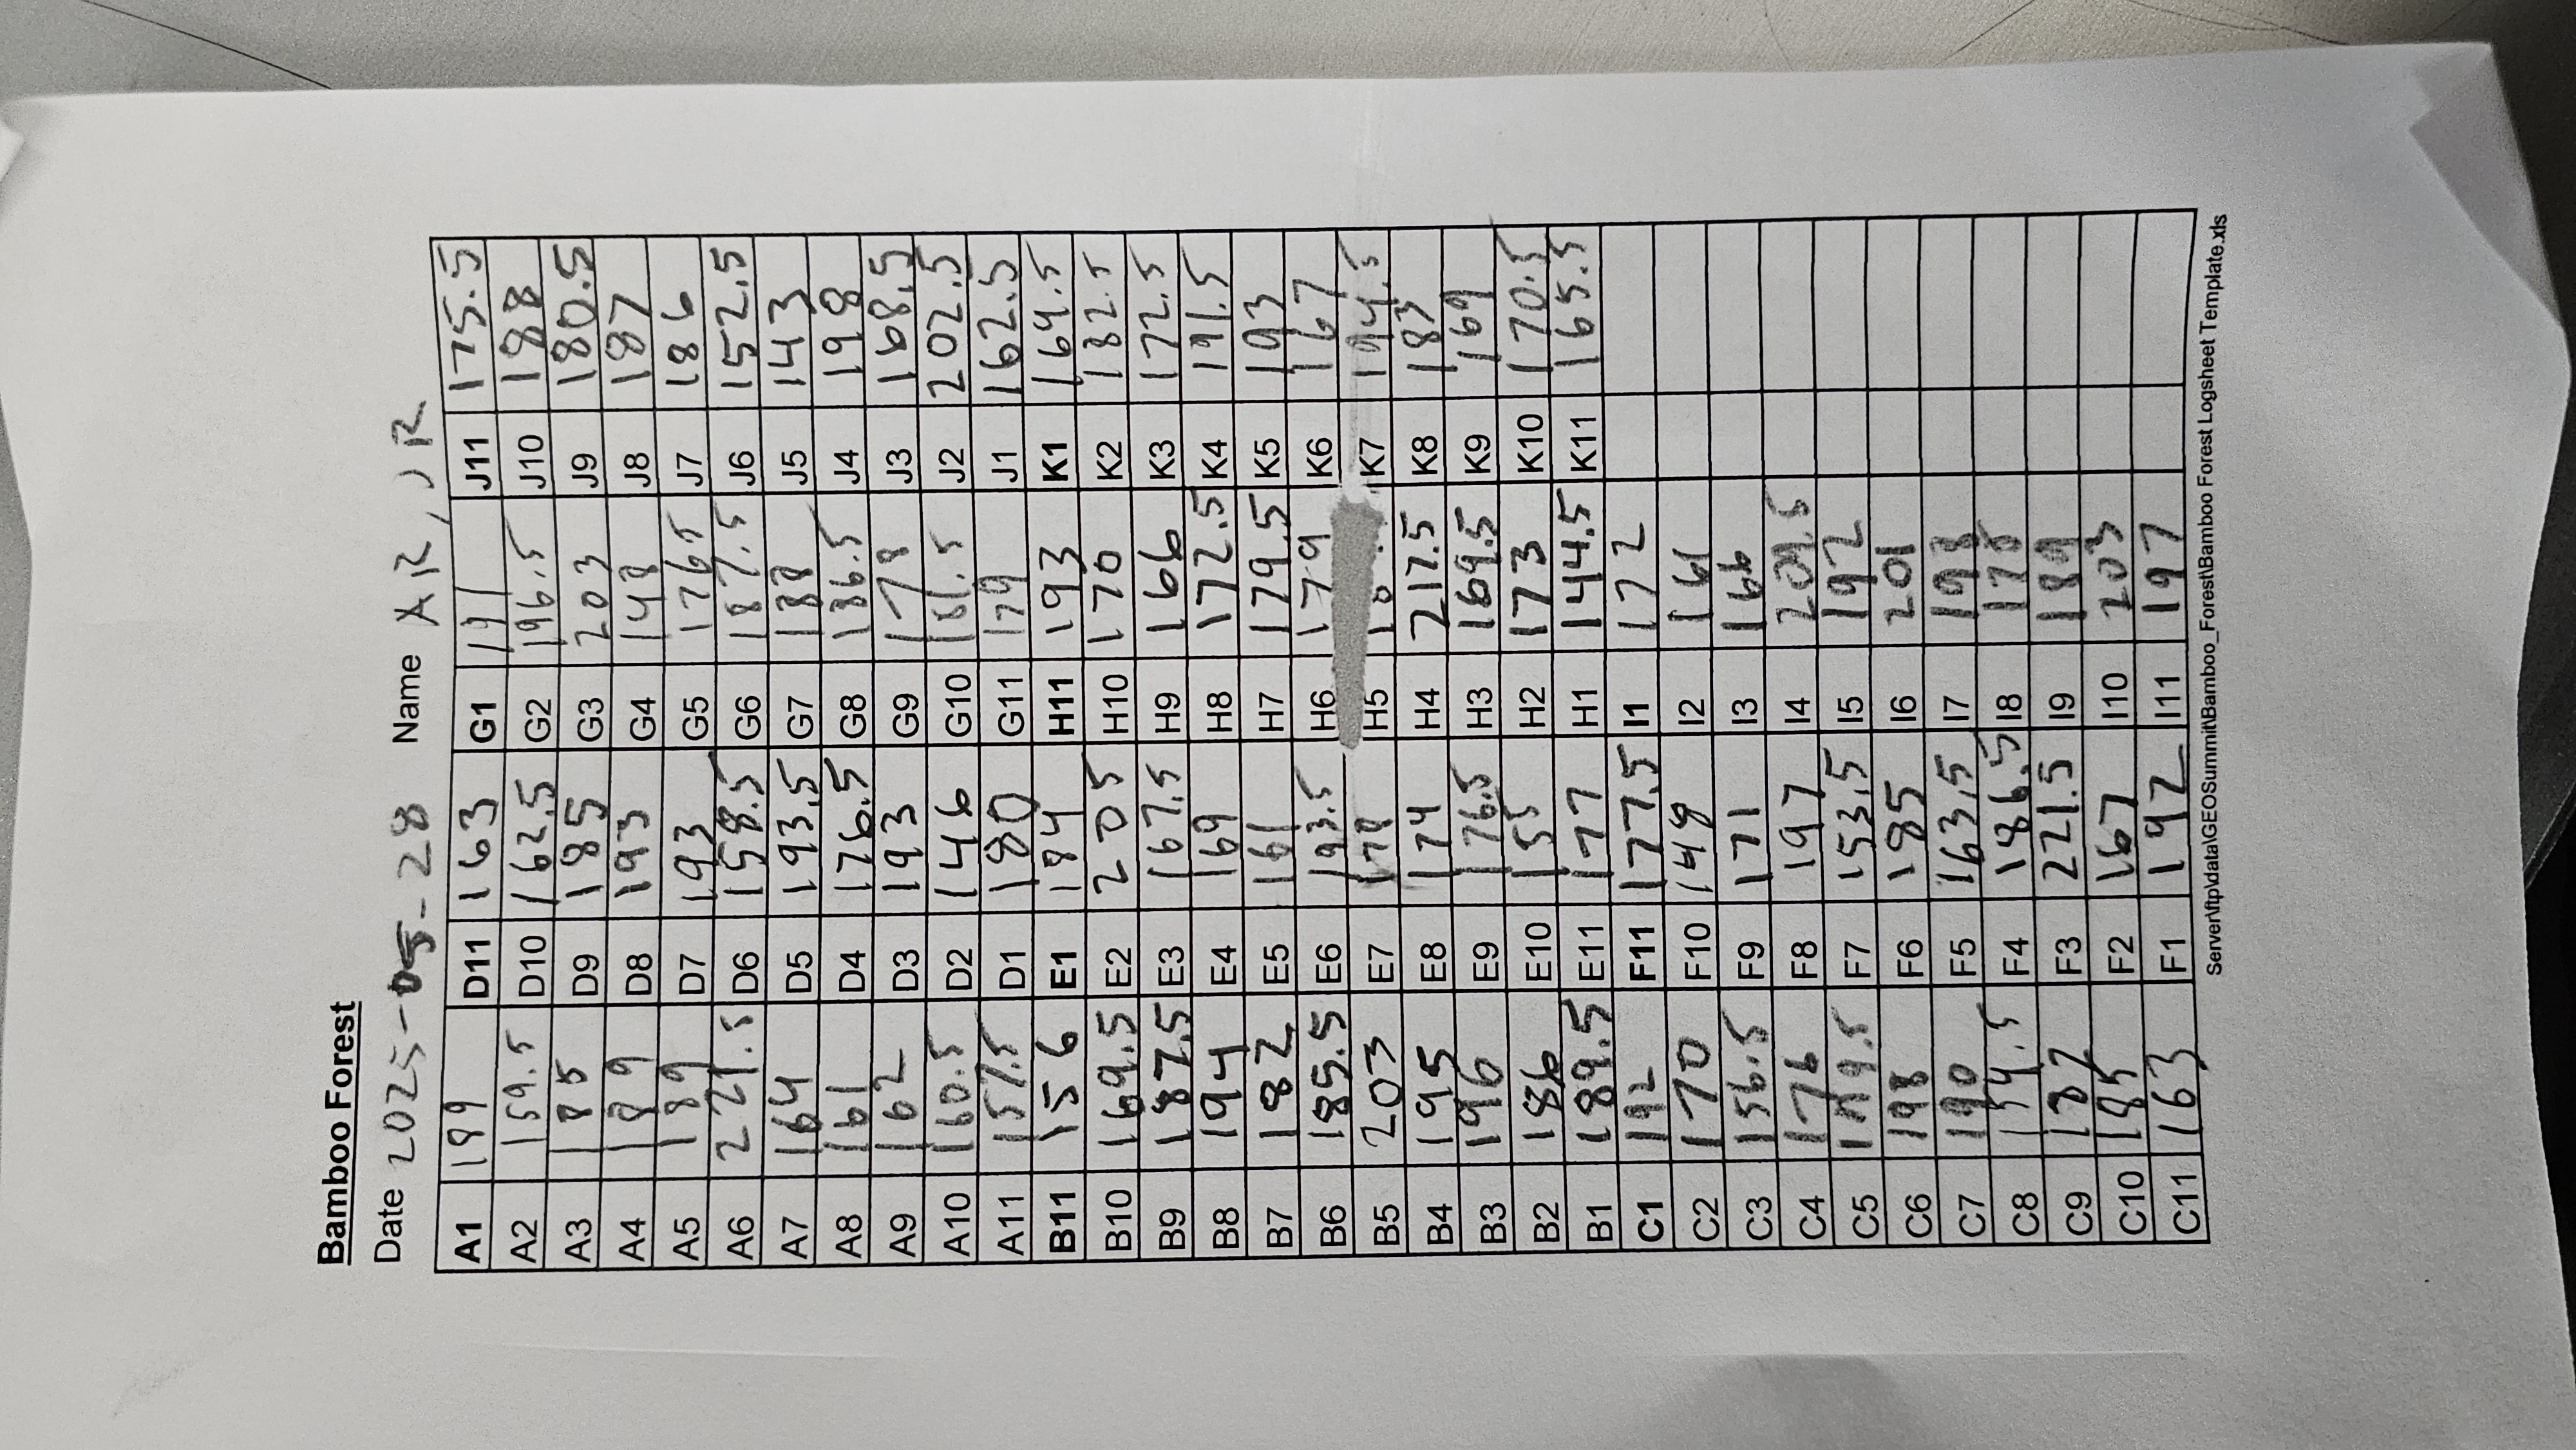 Bamboo Forest
Date 2025-05-28 Name AR, JR
A1 199 D11 163 G1 171 J11 175.5
A2 159.5 D10 162.5 G2 196.5 J10 188
A3 185 D9 185 G3 203 J9 180.5
A4 189 D8 193 G4 148 J8 187
A5 189 D7 193 G5 176.5 J7 186
A6 221.5 D6 158.5 G6 187.5 J6 152.5
A7 164 D5 193.5 G7 188 J5 143
A8 161 D4 176.5 G8 186.5 J4 198
A9 162 D3 193 G9 178 J3 168.5
A10 160.5 D2 146 G10 161.5 J2 202.5
A11 157.5 D1 180 G11 179 J1 162.5
B11 156 E1 184 H11 193 K1 164.5
B10 169.5 E2 205 H10 170 K2 182.5
B9 187.5 E3 167.5 H9 166 K3 172.5
B8 194 E4 169 H8 172.5 K4 191.5
B7 182 E5 161 H7 179.5 K5 193
B6 185.5 E6 193.5 H6 179 K6 167
B5 203 E7 H5 K7 194.5
B4 195 E8 174 H4 217.5 K8 183
B3 196 E9 176.5 H3 169.5 K9 169
B2 186 E10 155 H2 173 K10 170.5
B1 189.5 E11 177 H1 144.5 K11 165.5
C1 192 F11 177.5 I1 172
C2 170 F10 148 I2 161
C3 156.5 F9 171 I3 166
C4 176 F8 197 I4 209.5
C5 F7 153.5 I5 192
C6 198 F6 185 I6 201
C7 190 F5 163.5 I7 193
C8 154.5 F4 186.5 I8 178
C9 187 F3 221.5 I9 189
C10 185 F2 167 I10 203
C11 163 F1 192 I11 197
Server\ftp\data\GEOSummit\Bamboo_Forest\Bamboo Forest Logsheet Template.xls